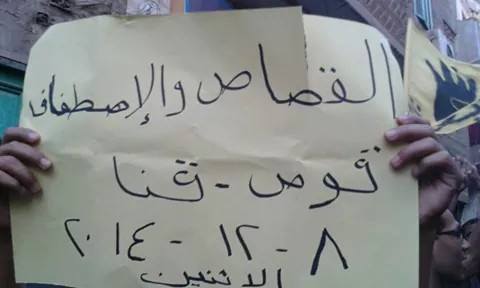 القصاص والإصطفاف
قوص - قنا
٨ - ١٢ - ٢٠١٤
الاثنين